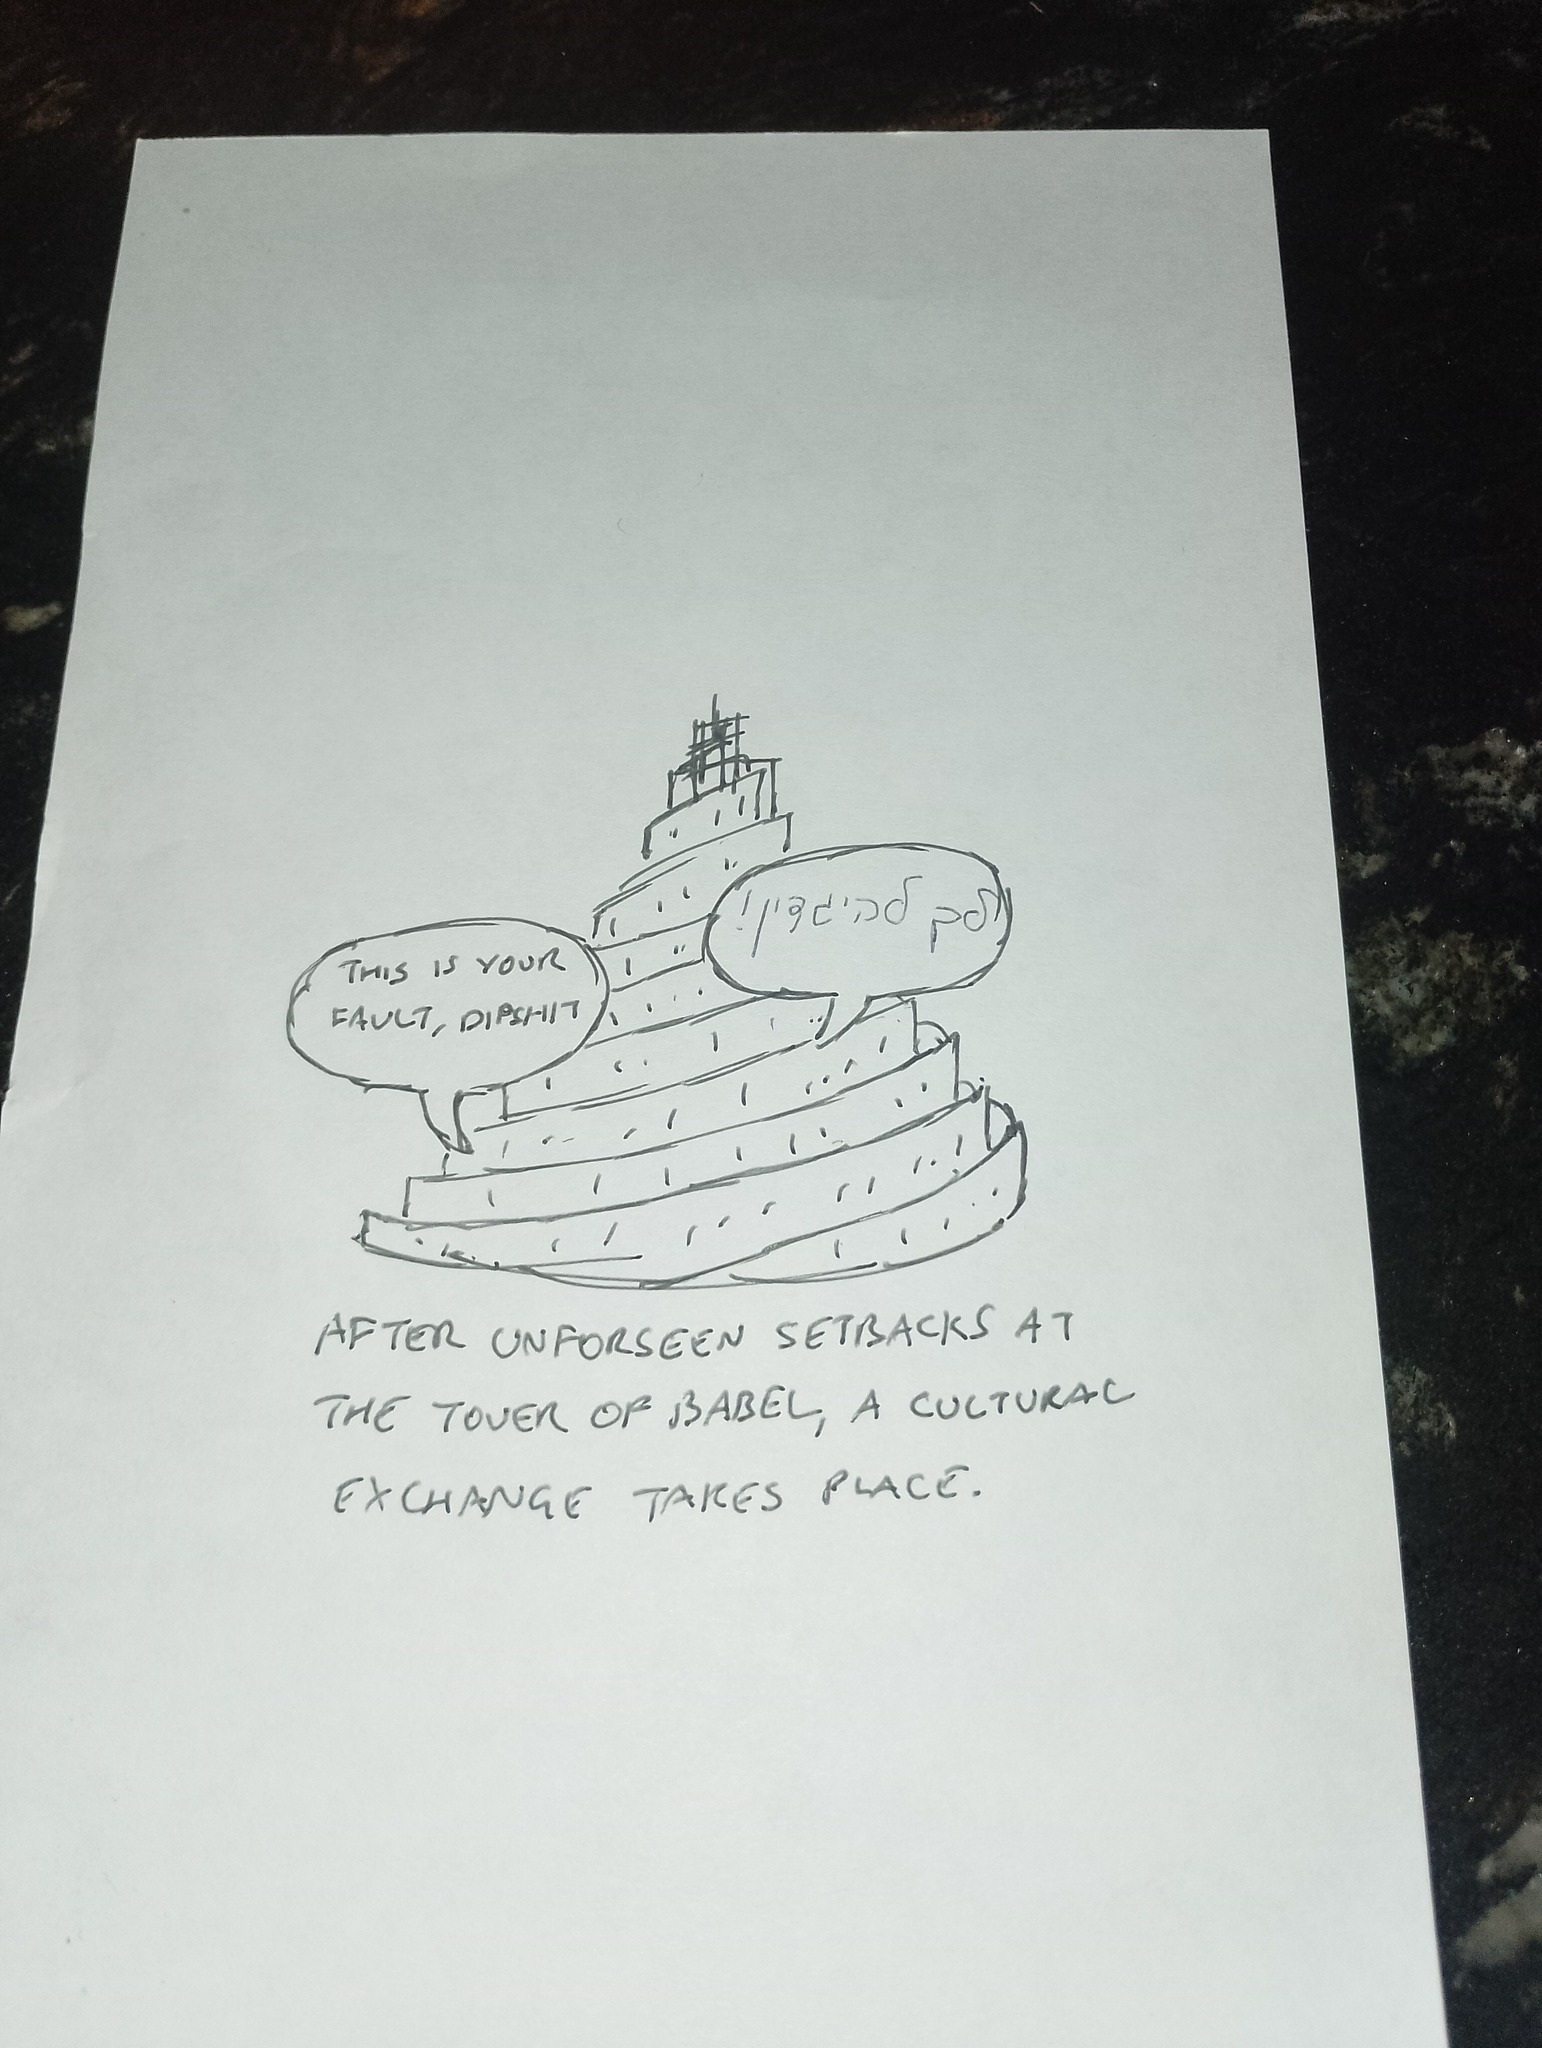 THIS IS YOUR
FAULT, DIPSHIT
לך להיזדיין!
AFTER UNFORSEEN SETBACKS AT
THE TOWER OF BABEL, A CULTURAL
EXCHANGE TAKES PLACE.